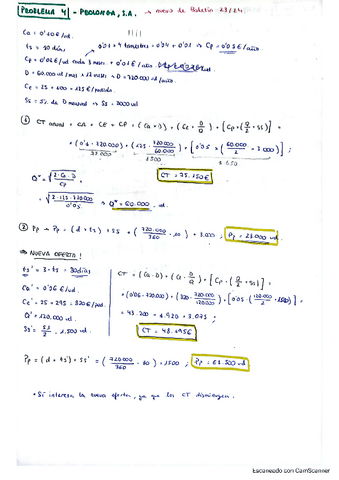 PROBLEMA 4 - PROLONGA, S.A. → nuevo de Boletín 23/24
Ca = 0'10 €/ud.
ts = 10 días
D = 60.000 ud/mes x 12 meses → D = 720.000 ud/año
Ce = 25 + 100 = 125 €/pedido
Ss = 5% de D mensual → Ss = 3000 ud.
① CT anual = CA + CE + CP = (Ca · D) + (Ce · D/Q) + [Cp · (Q/2 + SS)] =
= (0'1 · 720.000) + (125 · 720.000/60.000) + [0'05 · (60.000/2 + 3.000)] ;
1.500
1.650
CT = 75.150 €
Q* = √(2 · Ce · D / Cp)
√(2 · 125 · 720.000 / 0'05) → Q* = 60.000 ud.
② Pp → Pp = (d · ts) + SS = (720.000/360 · 10) + 3.000 ; Pp = 23.000 ud.
⇒ NUEVA OFERTA !
ts' = 3 · ts = 30 días
Ca' = 0'06 €/ud.
Ce' = 25 + 295 = 320 €/ped.
Q' = 120.000 ud.
Ss' = SS/2 = 1.500 ud.
CT = (Ca · D) + (Ce · D/Q) + [Cp · (Q/2 + SS)] =
= (0'06 · 720.000) + (320 · 720.000/120.000) + [0'05 · (120.000/2 + 1500)] =
= 43.200 + 1.920 + 3.075 ;
CT = 48.195 €
Pp = (d · ts') + SS' = (720.000/360 · 30) + 1500 ; Pp = 61.500 ud.
• Sí interesa la nueva oferta, ya que los CT disminuyen.
Escaneado con CamScanner